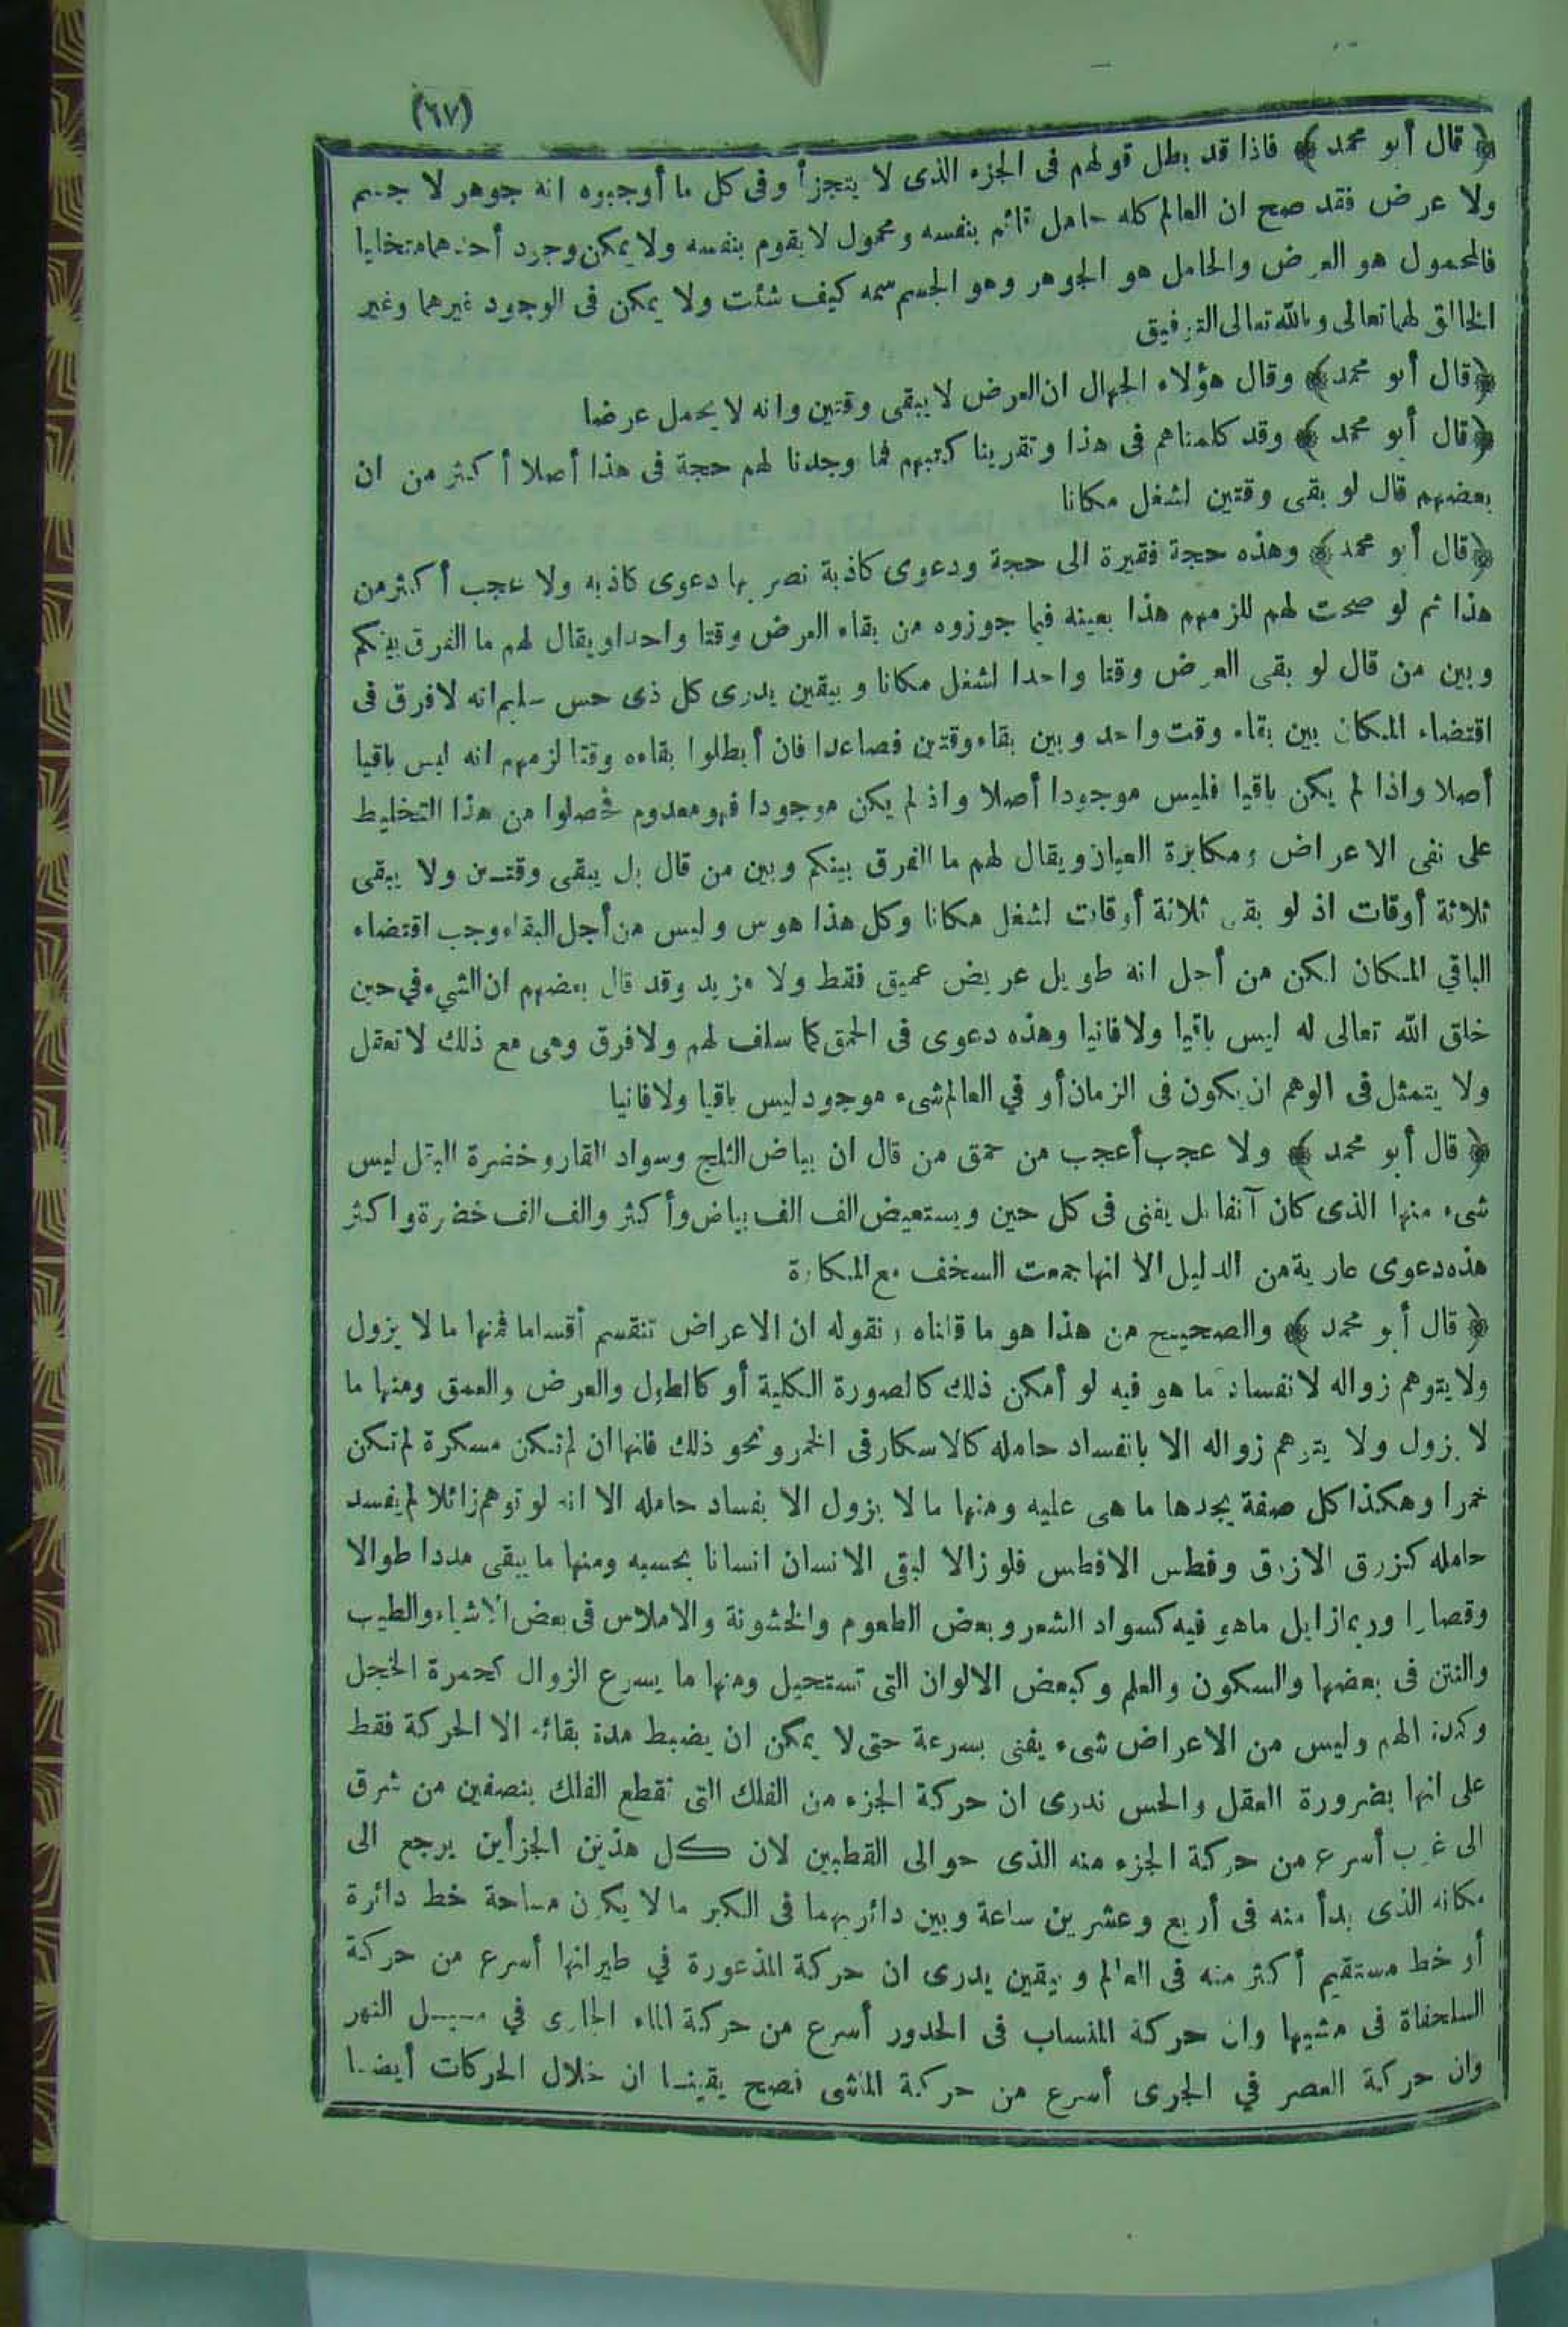 (٦٧)
﴿ قال أبو محمد ﴾ فاذا قد بطل قولهم فى الجزء الذى لا يتجزأ وفى كل ما أوجبوه انه جوهر لا جسم
ولا عرض فقد صح ان العالم كله حامل قائم بنفسه ومحمول لا يقوم بنفسه ولا يمكن وجود أحدهما متخليا
فالمحمول هو العرض والحامل هو الجوهر وهو الجسم سمه كيف شئت ولا يمكن فى الوجود غيرهما وغير
الخالق لهما تعالى وبالله تعالى التوفيق
﴿ قال أبو محمد ﴾ وقال هؤلاء الجهال ان العرض لا يبقى وقتين وانه لا يحمل عرضا
﴿ قال أبو محمد ﴾ وقد كلمناهم فى هذا وتقرينا كتبهم فما وجدنا لهم حجة فى هذا أصلا أكثر من ان
بعضهم قال لو بقى وقتين لشغل مكانا
﴿ قال أبو محمد ﴾ وهذه حجة فقيرة الى حجة ودعوى كاذبة نصر بها دعوى كاذبه ولا عجب أكثر من
هذا ثم لو صحت لهم للزمهم هذا بعينه فيما جوزوه من بقاء العرض وقتا واحدا ويقال لهم ما الفرق بينكم
وبين من قال لو بقى العرض وقتا واحدا لشغل مكانا وبيقين يدرى كل ذى حس سليم انه لا فرق فى
اقتضاء المكان بين بقاء وقت واحد وبين بقاء وقتين فصاعدا فان أبطلوا بقاءه وقتا لزمهم انه ليس باقيا
أصلا واذا لم يكن باقيا فليس موجودا أصلا واذ لم يكن موجودا فهو معدوم فحصلوا من هذا التخليط
على نفى الاعراض ومكابرة العيان ويقال لهم ما الفرق بينكم وبين من قال بل يبقى وقتـين ولا يبقى
ثلاثة أوقات اذ لو بقى ثلاثة أوقات لشغل مكانا وكل هذا هوس وليس من أجل البقاء وجب اقتضاء
الباقي المكان لكن من أجل انه طويل عريض عميق فقط ولا مزيد وقد قال بعضهم ان الشيء في حين
خلق الله تعالى له ليس باقيا ولا فانيا وهذه دعوى فى الحمق كما سلف لهم ولا فرق وهى مع ذلك لا تعقل
ولا يتمثل فى الوهم ان يكون فى الزمان أو في العالم شىء موجود ليس باقيا ولا فانيا
﴿ قال أبو محمد ﴾ ولا عجب أعجب من حمق من قال ان بياض الثلج وسواد القار وخضرة البقل ليس
شىء منها الذى كان آنفا بل يفنى فى كل حين ويستعيض الف الف بياض وأكثر والف الف خضرة واكثر
هذه دعوى عارية من الدليل الا انها جمعت السخف مع المكابرة
﴿ قال أبو محمد ﴾ والصحيح من هذا هو ما قلناه ونقوله ان الاعراض تنقسم أقساما فمنها ما لا يزول
ولا يتوهم زواله لا نفساد ما هو فيه لو أمكن ذلك كالصورة الكلية أو كالطول والعرض والعمق ومنها ما
لا يزول ولا يتوهم زواله الا بانفساد حامله كالاسكار فى الخمر ونحو ذلك فانها ان لم تكن مسكرة لم تكن
خمرا وهكذا كل صفة يجدها ما هى عليه ومنها ما لا يزول الا بفساد حامله الا انه لو توهم زائلا لم يفسد
حامله كزرق الازرق وفطس الافطس فلو زالا لبقى الانسان انسانا بحسبه ومنها ما يبقى مددا طوالا
وقصارا وربما زايل ما هو فيه كسواد الشعر وبعض الطعوم والخشونة والاملاس فى بعض الاشياء والطيب
والنتن فى بعضها والسكون والعلم وكبعض الالوان التى تستحيل ومنها ما يسرع الزوال كحمرة الخجل
وكمدة الهم وليس من الاعراض شىء يفنى بسرعة حتى لا يمكن ان يضبط مدة بقائه الا الحركة فقط
على انها بضرورة العقل والحس ندرى ان حركة الجزء من الفلك التى تقطع الفلك بنصفين من شرق
الى غرب أسرع من حركة الجزء منه الذى حوالى القطبين لان كل هذين الجزأين يرجع الى
مكانه الذى بدأ منه فى أربع وعشرين ساعة وبين دائرتيهما فى الكبر ما لا يكون مساحة خط دائرة
أو خط مستقيم أكثر منه فى العالم وبيقين يدرى ان حركة المذعورة في طيرانها أسرع من حركة
السلحفاة فى مشيها وان حركة المنساب فى الحدور أسرع من حركة الماء الجارى في مسيـل النهر
وان حركة العصر في الجرى أسرع من حركة الماشى فصح يقينـا ان خلال الحركات أيضـا